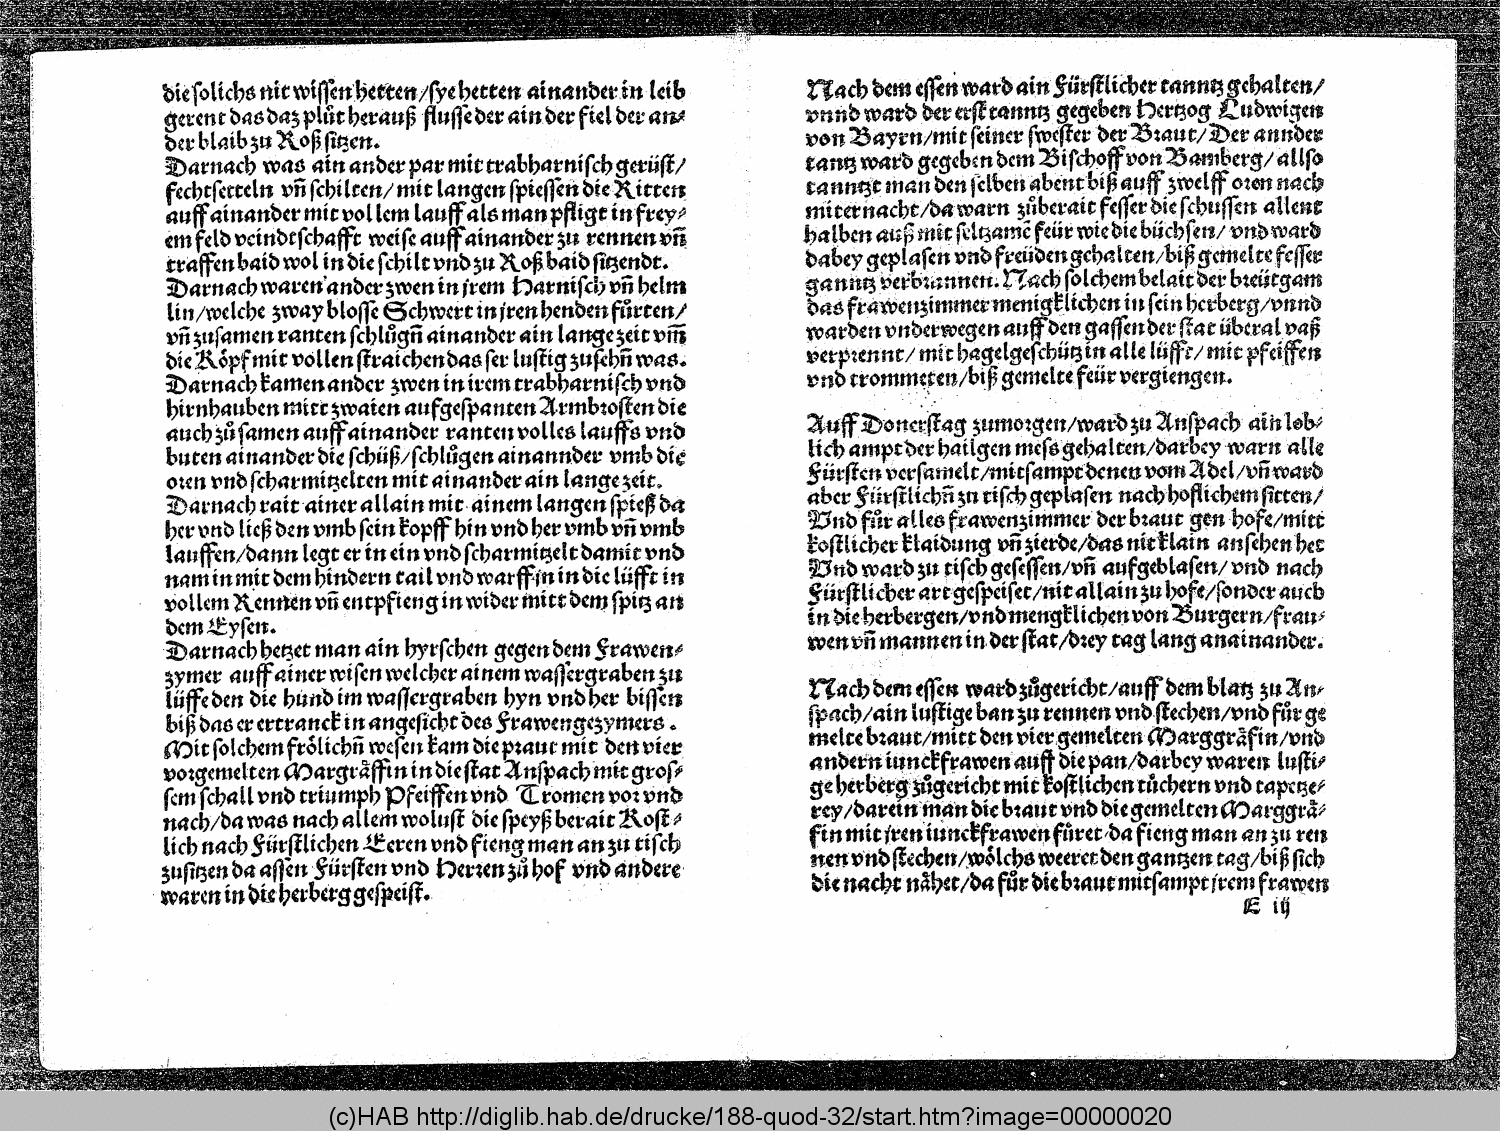 die solichs nit wissen hetten/sye hetten ainander in leib
gerent das daz plůt herauß flusse der ain der fiel der an⸗
der blaib zu Roß sitzen.
Darnach was ain ander par mit trabharnisch gerüst/
fechtsetteln vñ schilten/ mit langen spiessen die Ritten
auff ainander mit vollem lauff als man pfligt in frey⸗
em feld veindtschafft weise auff ainander zu rennen vñ
traffen baid wol in die schilt vnd zu Roß baid sitzendt.
Darnach waren ander zwen in jrem Harnisch vñ helm
lin/welche zway blosse Schwert in jren henden fůrten/
vñ zusamen ranten schlůgñ ainander ain lange zeit vm̃
die Köpf mit vollen straichen das ser lustig zusehñ was.
Darnach kamen ander zwen in irem trabharnisch vnd
hirnhauben mitt zwaien aufgespanten Armbrosten die
auch zů samen auff ainander ranten volles lauffs vnd
buten ainander die schüß/schlůgen ainannder vmb die
oren vnd scharmitzelten mit ainander ain lange zeit.
Darnach rait ainer allain mit ainem langen spieß da
her vnd ließ den vmb sein kopff hin vnd her vmb vñ vmb
lauffen/dann legt er in ein vnd scharmitzelt damit vnd
nam in mit dem hindern tail vnd warff jn in die lüfft in
vollem Rennen vñ entpfieng in wider mitt dem spitz an
dem Eysen.
Darnach hetzet man ain hyrschen gegen dem Frawen⸗
zymer auff ainer wisen welcher ainem wassergraben zu
lüffe den die hund im wassergraben hyn vnd her bissen
biß das er ertranck in angesicht des Frawengezymers .
Mit solchem frölichñ wesen kam die praut mit den vier
vorgemelten Margräffin in die stat Anspach mit gros⸗
sem schall vnd triumph Pfeiffen vnd Tromen vor vnd
nach/da was nach allem wolust die speyß berait Kost⸗
lich nach Fürstlichen Eeren vnd fieng man an zu tisch
zusitzen da assen Fürsten vnd Herren zů hof vnd andere
waren in die herberg gespeist.
Nach dem essen ward ain Fürstlicher tanntz gehalten/
vnnd ward der erst tanntz gegeben Hertzog Ludwigen
von Bayrn/mit seiner swester der Braut/Der annder
tantz ward gegeben dem Bischoff von Bamberg/ allso
tanntzt man den selben abent biß auff zwelff oren nach
miternacht/da warn zůberait fesser die schussen allent
halben auß mit seltzamē feür wie die büchsen/ vnd ward
dabey geplasen vnd freüden gehalten/biß gemelte fesser
ganntz verbrannen. Nach solchem belait der breütgam
das frawenzimmer menigklichen in sein herberg/vnnd
warden vnderwegen auff den gassen der stat überal vaß
verprennt/ mit hagelgeschütz in alle lüfft/ mit pfeiffen
vnd trommeten/biß gemelte feür vergiengen.
Auff Donerstag zumorgen/ward zu Anspach ain lob⸗
lich ampt der hailgen mess gehalten/darbey warn alle
Fürsten versamelt/mitsampt denen vom Adel/vñ ward
aber Fürstlichñ zu tisch geplasen nach hoflichem sitten/
Vnd fůr alles frawenzimmer der braut gen hofe/mitt
kostlicher klaidung vñ zierde/das nit klain ansehen het
Vnd ward zu tisch gesessen/vñ aufgeblasen/ vnd nach
Fürstlicher art gespeiset/nit allain zu hofe/sonder auch
in die herbergen/vnd mengklichen von Burgern/frau⸗
wen vñ mannen in der stat/drey tag lang anainander.
Nach dem essen ward zůgericht/auff dem blatz zu An⸗
spach/ain lustige ban zu rennen vnd stechen/vnd fůr ge
melte braut/mitt den vier gemelten Marggräfin/vnd
andern iunckfrawen auff die pan/darbey waren lusti⸗
ge herberg zůgericht mit kostlichen tůchern vnd tapetze⸗
rey/darein man die braut vnd die gemelten Marggrä⸗
fin mit jren iunckfrawen fůret/da fieng man an zu ren
nen vnd stechen/wölchs weeret den gantzen tag/biß sich
die nacht nähet/da fůr die braut mitsampt jrem frawen
E iij
(c)HAB http://diglib.hab.de/drucke/188-quod-32/start.htm?image=00000020